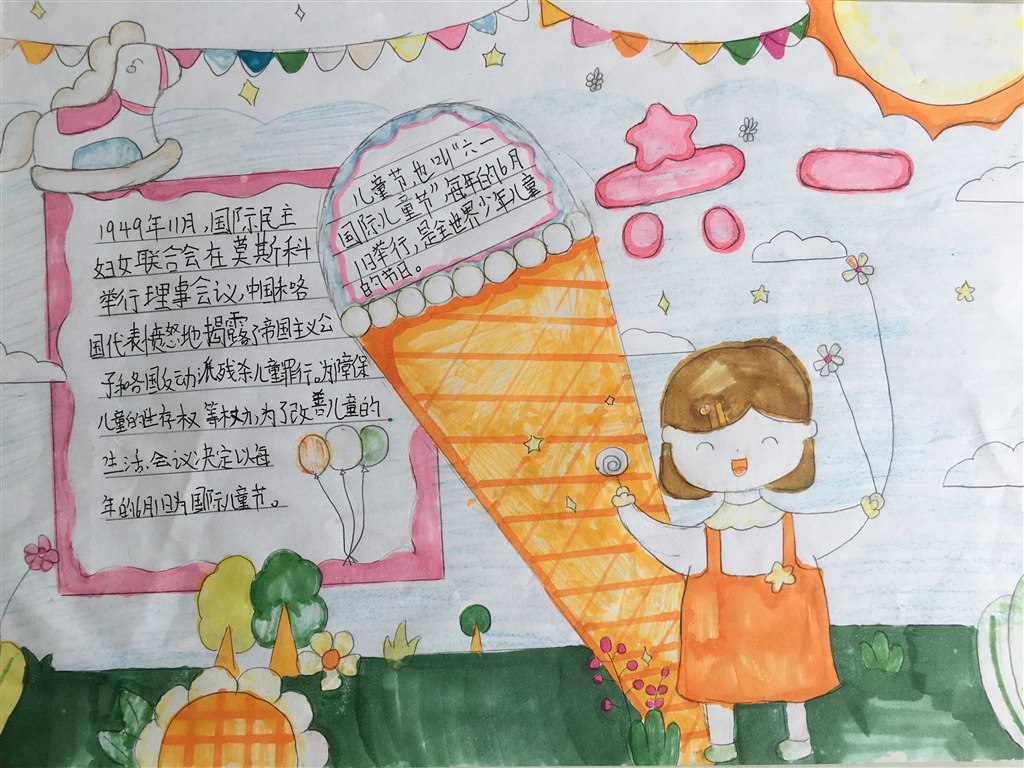 1949年11月，国际民主
妇女联合会在莫斯科
举行理事会议，中国和各
国代表愤怒地揭露了帝国主义分
子和各国反动派残杀儿童罪行。为障保
儿童的生存权等权力，为了改善儿童的
生活，会议决定以每
年的6月1日为国际儿童节。
儿童节，也叫“六一
国际儿童节”，每年的6月
1日举行，是全世界少年儿童
的节日。
六一